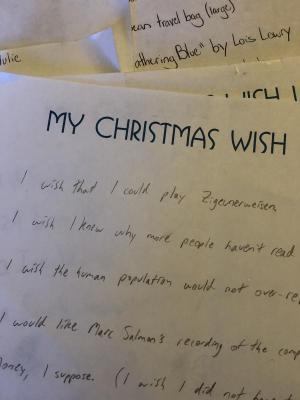 ean travel bag (large)
Julie
athering Blue" by Lois Lowry
WISH
MY CHRISTMAS WISH
I wish that I could play Zigeunerweisen.
I wish I knew why more people haven't read
I wish the human population would not over-re
I would like Marc Salman's recording of the comp
Money, I suppose. (I wish I did not have t